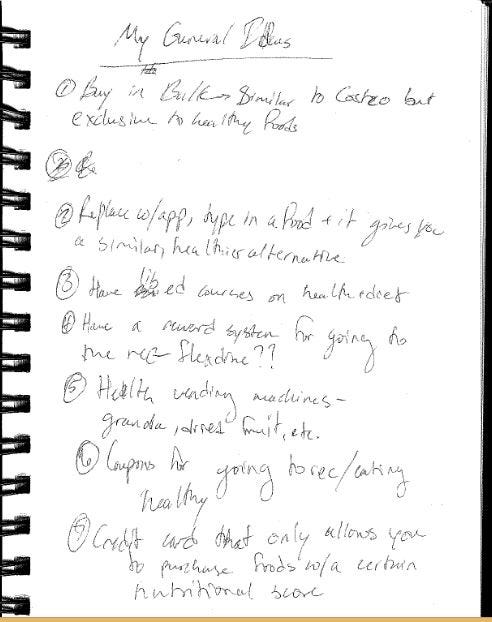 My General Ideas
① Buy in Bulk → Similar to Costco but
exclusive to healthy foods
② Replace w/app, type in a food + it gives you
a similar, healthier alternative
③ Have lib ed courses on health + diet
④ Have a reward system for going to
the rec - flexdine??
⑤ Health vending machines -
granola, dried fruit, etc.
⑥ Coupons for going to rec/eating
healthy
⑦ Credit card that only allows you
to purchase foods w/a certain
nutritional score